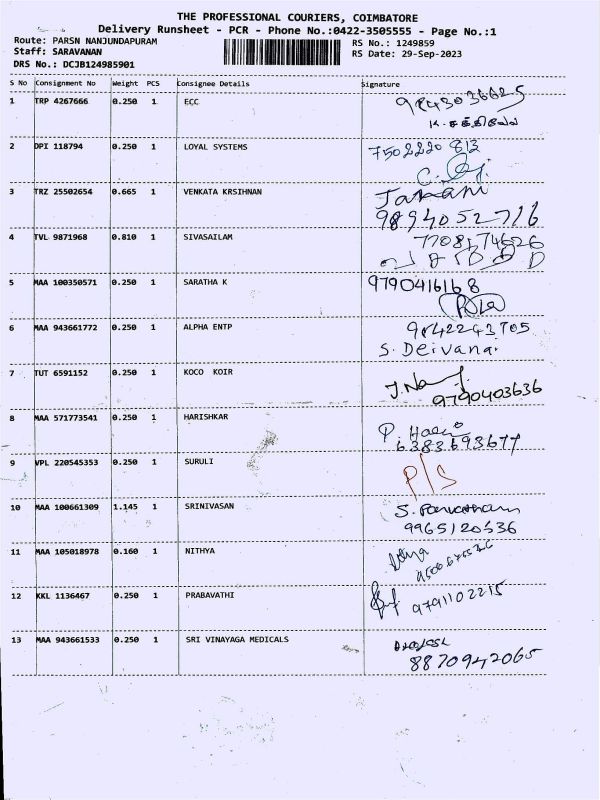 THE PROFESSIONAL COURIERS, COIMBATORE
Delivery Runsheet - PCR - Phone No.:0422-3505555 - Page No.:1
Route: PARSN NANJUNDAPURAM
RS No.: 1249859
Staff: SARAVANAN
RS Date: 29-Sep-2023
DRS No.: DCJB124985901
S No Consignment No Weight PCS Consignee Details Signature
1 TRP 4267666 0.250 1 ECC 9843036625
2 DPI 118794 0.250 1 LOYAL SYSTEMS 7502220 813
3 TRZ 25502654 0.665 1 VENKATA KRSIHNAN Janani
9894052716
4 TVL 9871968 0.810 1 SIVASAILAM 7708174626
5 MAA 100350571 0.250 1 SARATHA K 9790416168
6 MAA 943661772 0.250 1 ALPHA ENTP 9842243705
S. Deivanai
7 TUT 6591152 0.250 1 KOCO KOIR
9790403636
8 MAA 571773541 0.250 1 HARISHKAR P. Hari
6383693677
9 VPL 220545353 0.250 1 SURULI P/S
10 MAA 100661309 1.145 1 SRINIVASAN S. Parvatham
9965120536
11 MAA 105018978 0.160 1 NITHYA
12 KKL 1136467 0.250 1 PRABAVATHI 9791102215
13 MAA 943661533 0.250 1 SRI VINAYAGA MEDICALS
8870942065